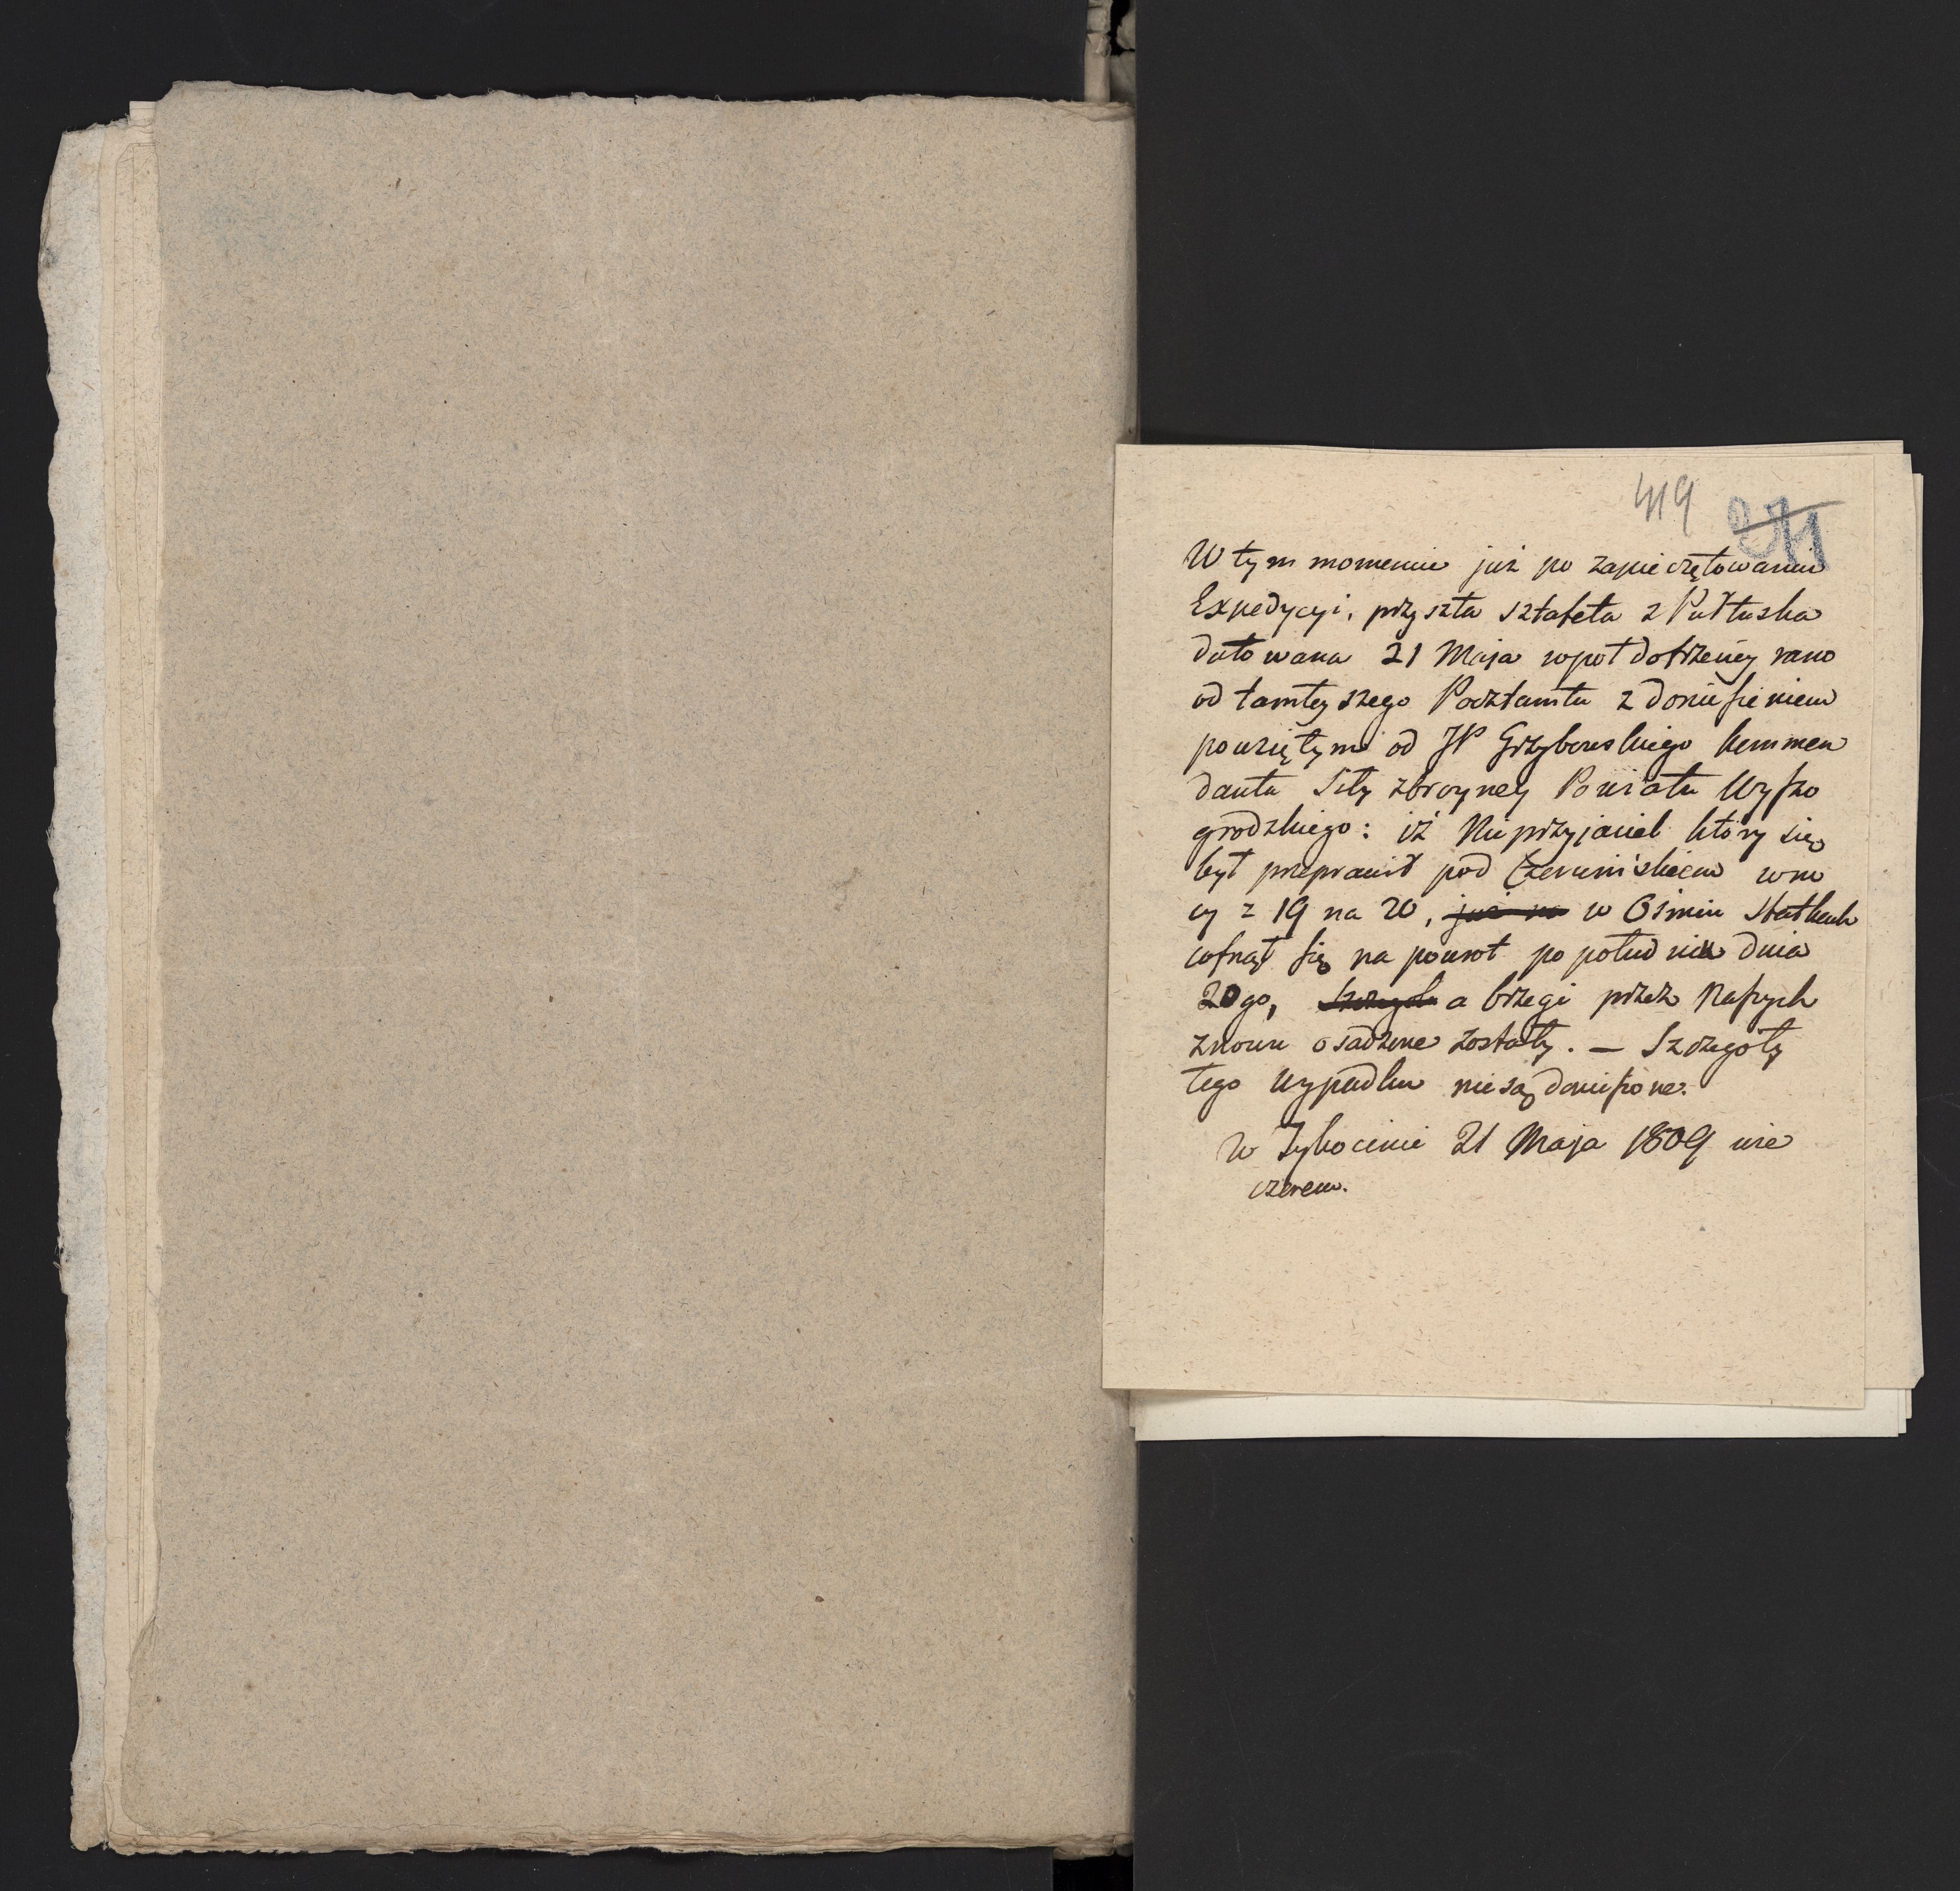 419 ~~371~~
W tym momencie już po zapieczętowaniu
Expedycyi, przyszła sztafeta z Pułtuska
datowana 21 Maja wpoł dotrzeciey rano
od tamteyszego Pocztamtu z doniesieniem
powziętym od JP Grzybowskiego kommen
danta Siły zbroyney Powiatu Wyszo
grodzkiego: iż Nieprzyjaciel który się
był przeprawił pod Czerwińskiem wno
cy z 19 na 20, ~~już na~~ w Ośmiu Statkach
cofnął się na powrot po południu dnia
20go, ~~szczegoły~~ a brzegi przez Naszych
znowu osadzone zostały. — Szczegóły
tego wypadku niesą doniesione.
W Tykocinie 21 Maja 1809 wie
czorem.